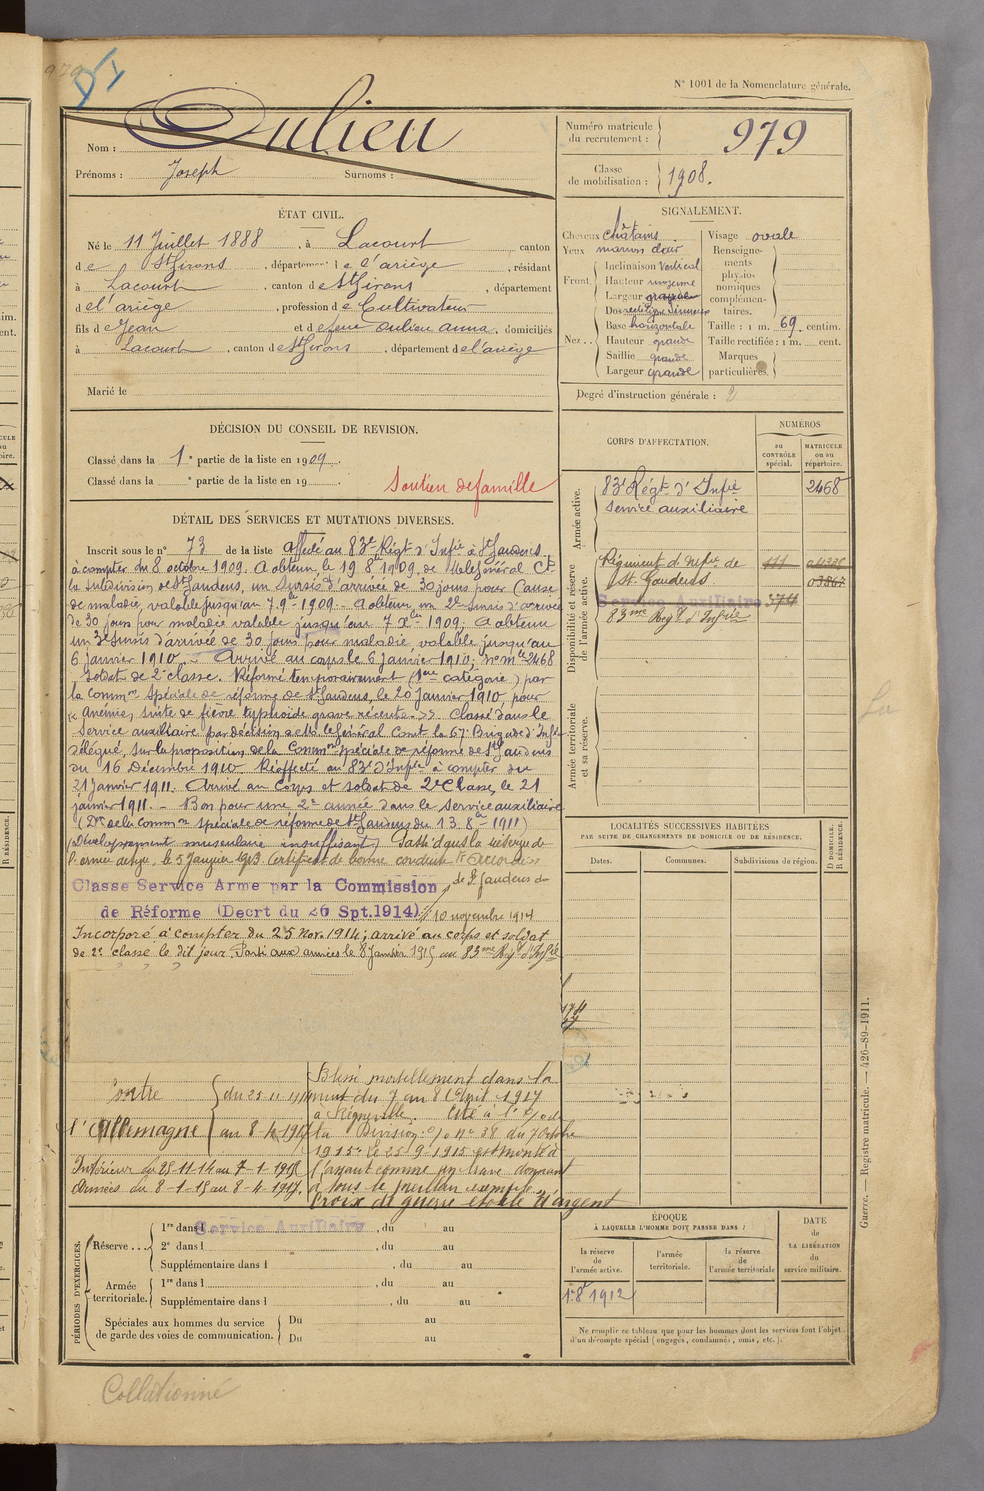 979
D I
N° 1001 de la Nomenclature générale.
Nom : Aulieu
Prénoms : Joseph Surnoms :
Numéro matricule du recrutement : 979
Classe de mobilisation : 1908.
ÉTAT CIVIL.
Né le 11 Juillet 1888, à Lacourt, canton
de St Girons, département de l'ariège, résidant
à Lacourt, canton de St Girons, département
de l'ariège, profession de Cultivateur
fils de Jean et de feue aulieu anna, domiciliés
à Lacourt, canton de St Girons, département de l'ariège
Marié le
SIGNALEMENT.
Cheveux châtains
Yeux marron clair
Front. Inclinaison vertical
Hauteur moyenne
Largeur grande
Nez.. Dos rectiligne sinueux
Base horizontale
Hauteur grande
Saillie grande
Largeur grande
Visage ovale
Renseignements physionomiques complémentaires.
Taille : 1 m. 69 centim.
Taille rectifiée : 1 m. cent.
Marques particulières.
Degré d'instruction générale : 2
DÉCISION DU CONSEIL DE REVISION.
Classé dans la 1e partie de la liste en 1909.
Classé dans la e partie de la liste en 19
Soutien de famille
DÉTAIL DES SERVICES ET MUTATIONS DIVERSES.
Inscrit sous le n° 73 de la liste Affecté au 83e Régt d'Infie à St Gaudens
à compter du 8 octobre 1909. A obtenu, le 19 8bre 1909, de M le Général Ct
la subdivision de St Gaudens, un sursis d'arrivée de 30 jours pour Cause
de maladie, valable jusqu'au 7 9bre 1909 - A obtenu, un 2e sursis d'arrivée
de 30 jours pour maladie valable jusqu'au 7 Xbre 1909; A obtenu
un 3e sursis d'arrivée de 30 jours pour maladie, valable jusqu'au
6 janvier 1910. - Arrivé au corps le 6 janvier 1910; n° mle 2468
soldat de 2e classe. Réformé temporairement (1ère catégorie) par
la Common spéciale de réforme de St Gaudens, le 20 janvier 1910, pour
« Anémie, suite de fièvre typhoide grave récente. » Classé dans le
service auxiliaire par décision de M. le Général Comt la 67e Brigade d'Infie
délégué, sur la proposition de la Common spéciale de réforme de St Gaudens
du 16 Décembre 1910. Réaffecté au 83e d'Infie à compter du
21 janvier 1911. Arrivé au Corps et soldat de 2e Classe, le 21
janvier 1911. - Bon pour une 2e année dans le service auxiliaire
(Don de la Common spéciale de réforme de St Gaudens du 13 8bre 1911)
(Développement musculaire insuffisant) Passé dans la réserve de
l'armée active, le 5 Janvier 1913 Certificat de bonne conduite
Classe Service Arme par la Commission
de St Gaudens du
de Réforme (Decrt du 26 Spt. 1914) 10 novembre 1914
Incorporé à compter du 25 Nov. 1914; arrivé au corps et soldat
de 2e classe le dit jour. Parti aux armées le 8 Janvier 1915 au 83me Régt d'Infie
l'Allemagne
du 25 11 1914
au 8 4 1917
Intérieur du 25-11-14 au 7-1-1915
Armées du 8-1-15 au 8-4-1917.
Blessé mortellement dans la
nuit du 7 au 8 Avril 1917
Cité à l'o/ de
la Division o/ n° 38 du 7 Octobre
1915: le 25 9 1915 est monté à
l'assaut comme un brave donnant
à tous le meilleur exemple.
Croix de guerre étoile d'argent
CORPS D'AFFECTATION.
NUMÉROS
au CONTRÔLE spécial.
MATRICULE ou au répertoire.
Armée active.
83e Régt d'Infie 2468
service auxiliaire
Disponibilité et réserve de l'armée active.
Régiment d'Infie de
St Gaudens 03867
Service Auxiliaire
83me Régt d'Infie
Armée territoriale et sa réserve.
LOCALITÉS SUCCESSIVES HABITÉES
PAR SUITE DE CHANGEMENTS DE DOMICILE OU DE RÉSIDENCE.
Dates. Communes. Subdivisions de région. D DOMICILE, R RÉSIDENCE.
PÉRIODES D'EXERCICES.
Réserve.... 1re dans l Service Auxiliaire, du au
2e dans l , du au
Supplémentaire dans l , du au
Armée territoriale. 1re dans l , du au
Supplémentaire dans l , du au
Spéciales aux hommes du service de garde des voies de communication. Du au
Du au
ÉPOQUE
À LAQUELLE L'HOMME DOIT PASSER DANS :
la réserve de l'armée active.
l'armée territoriale.
la réserve de l'armée territoriale
DATE de LA LIBÉRATION du service militaire.
1er 8bre 1912
Ne remplir ce tableau que pour les hommes dont les services font l'objet
d'un décompte spécial (engagés, condamnés, omis, etc.).
Guerre. — Registre matricule. — 426-89-1911.
Collationné